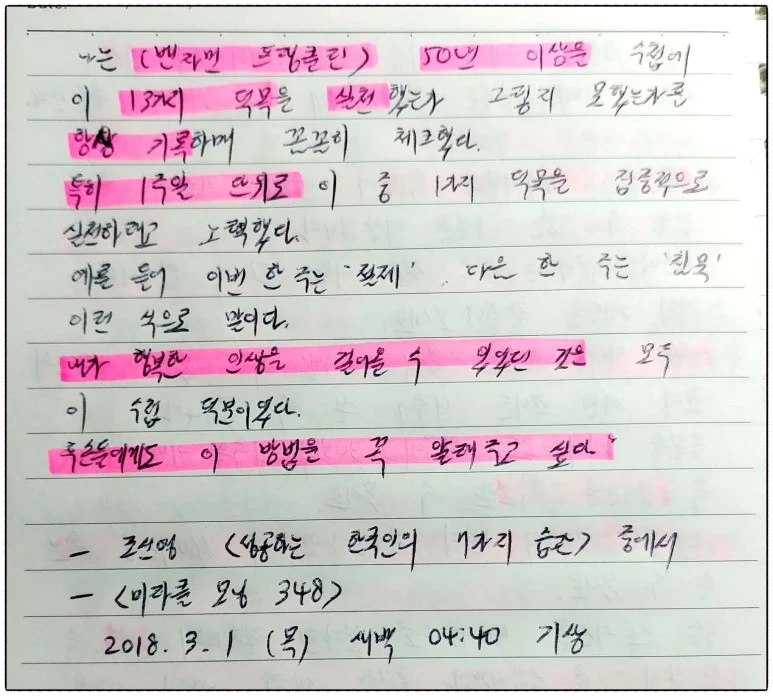 나는 (벤자민 프랭클린) 50년 이상을 수첩에
이 13가지 덕목을 실천했는가 그렇지 못했는가를
항상 기록하며 꼼꼼히 체크했다.
특히 1주일 단위로 이 중 1가지 덕목을 집중적으로
실천하려고 노력했다.
예를 들어 이번 한 주는 '절제', 다음 한 주는 '침묵'
이런 식으로 말이다.
내가 행복한 인생을 걸어올 수 있었던 것은 모두
이 수첩 덕분이었다.
후손들에게도 이 방법을 꼭 알려주고 싶다.
- 조신영 <성공하는 한국인의 7가지 습관> 중에서
- <미라클 모닝 348>
2018. 3. 1 (목) 새벽 04:40 기상